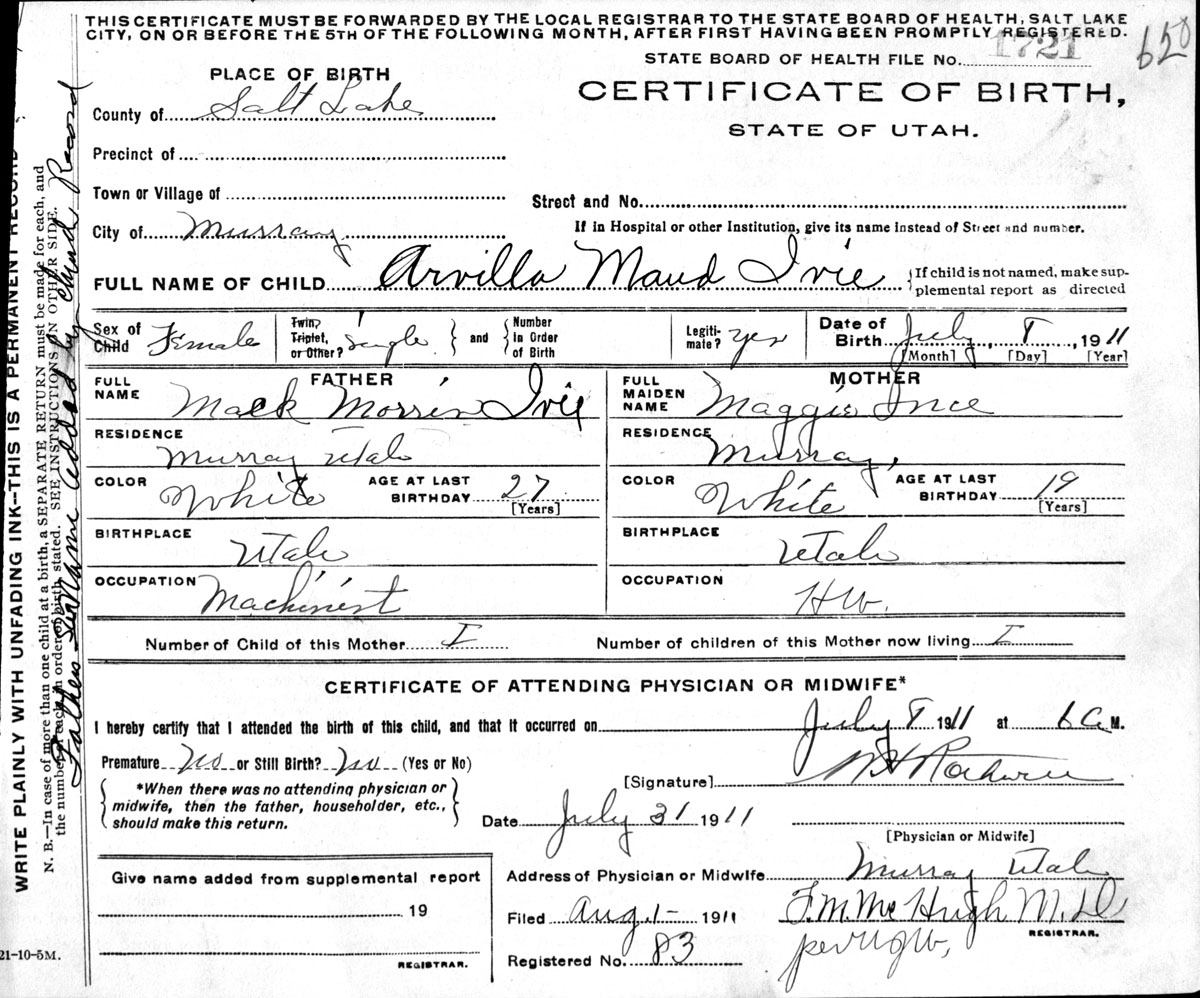 THIS CERTIFICATE MUST BE FORWARDED BY THE LOCAL REGISTRAR TO THE STATE BOARD OF HEALTH, SALT LAKE
CITY, ON OR BEFORE THE 5TH OF THE FOLLOWING MONTH, AFTER FIRST HAVING BEEN PROMPTLY REGISTERED.
650
STATE BOARD OF HEALTH FILE No. 1721
PLACE OF BIRTH
CERTIFICATE OF BIRTH,
STATE OF UTAH.
County of Salt Lake
Precinct of
Town or Village of
Street and No.
City of Murray
If in Hospital or other Institution, give its name instead of Street and number.
FULL NAME OF CHILD Arvilla Maud Ivie {If child is not named, make sup-
plemental report as directed
Sex of Child Female
Twin, Triplet, or Other? Single } and { Number In Order of Birth
Legiti-mate? yes
Date of Birth July 1911
[Month] [Day] [Year]
FATHER
FULL NAME Mack Morrin Ivie
RESIDENCE Murray Utah
COLOR White AGE AT LAST BIRTHDAY 27 [Years]
BIRTHPLACE Utah
OCCUPATION Machinist
MOTHER
FULL MAIDEN NAME Maggie Ince
RESIDENCE Murray,
COLOR White AGE AT LAST BIRTHDAY 19 [Years]
BIRTHPLACE Utah
OCCUPATION HW.
Number of Child of this Mother I Number of children of this Mother now living I
CERTIFICATE OF ATTENDING PHYSICIAN OR MIDWIFE*
I hereby certify that I attended the birth of this child, and that it occurred on July 1911 at 6 a M.
Premature No or Still Birth? No (Yes or No)
[Signature]
{ *When there was no attending physician or
midwife, then the father, householder, etc.,
should make this return. }
Date July 31 1911
[Physician or Midwife]
Give name added from supplemental report
19
REGISTRAR.
Address of Physician or Midwife Murray Utah
Filed Aug. 1- 1911 F. M. McHugh M. D
REGISTRAR.
Registered No. 83 per
21-10-5M.
WRITE PLAINLY WITH UNFADING INK—THIS IS A PERMANENT RECORD
N. B.—In case of more than one child at a birth, a SEPARATE RETURN must be made for each, and
the number of each, in order of birth, stated. SEE INSTRUCTIONS ON OTHER SIDE.
Fathers Surname added by Record